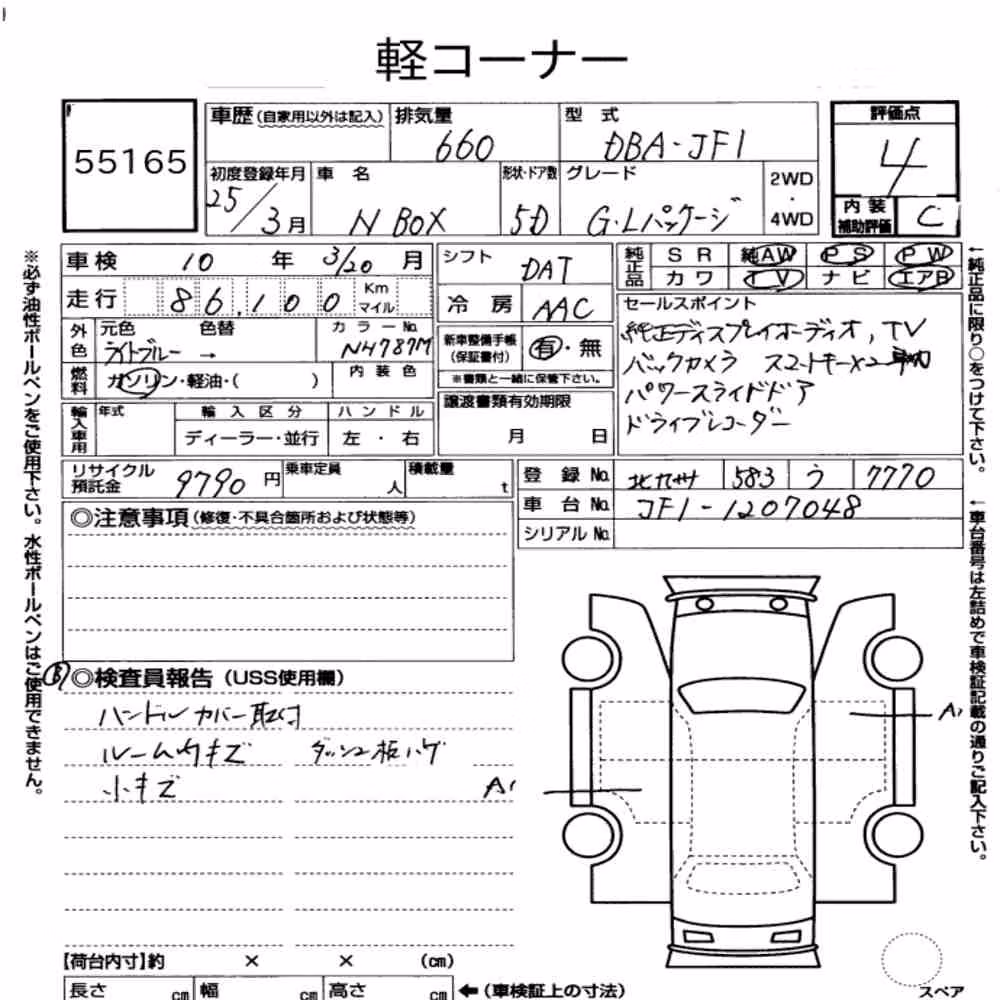 軽コーナー
55165
車歴(自家用以外は記入) 排気量 660 型式 DBA-JF1
評価点 4
初度登録年月 25/3月 車名 N BOX 形状・ドア数 5D グレード G・Lパッケージ 2WD・4WD
内装補助評価 C
車検 10年 3/20月 シフト DAT
純正品 SR 純AW PS PW
カワ TV ナビ エアB
走行 86,100 Km マイル 冷房 AAC
外色 元色 ライトブルー → 色替 カラーNo. NH787M
内装色
燃料 ガソリン・軽油・( )
新車整備手帳(保証書付) 有・無
※書類と一緒に保管下さい。
セールスポイント
純正ディスプレイオーディオ, TV
バックカメラ スマートキー×2
パワースライドドア
ドライブレコーダー
輸入車用 年式 輸入区分 ハンドル
ディーラー・並行 左・右
譲渡書類有効期限
月 日
リサイクル預託金 9790円 乗車定員 人 積載量 t
登録No. 北九州 583 う 7770
車台No. JF1-1207048
シリアルNo.
◎注意事項(修復・不具合箇所および状態等)
◎検査員報告(USS使用欄)
ハンドルカバー取付
ルーム内キズ ダッシュ板ハゲ
小キズ
A1
A1
【荷台内寸】約 × × (cm)
長さ cm 幅 cm 高さ cm ←(車検証上の寸法)
スペア
※必ず油性ボールペンをご使用下さい。水性ボールペンはご使用できません。
←純正品に限り○をつけて下さい。
←車台番号は左詰めで車検証記載の通りご記入下さい。